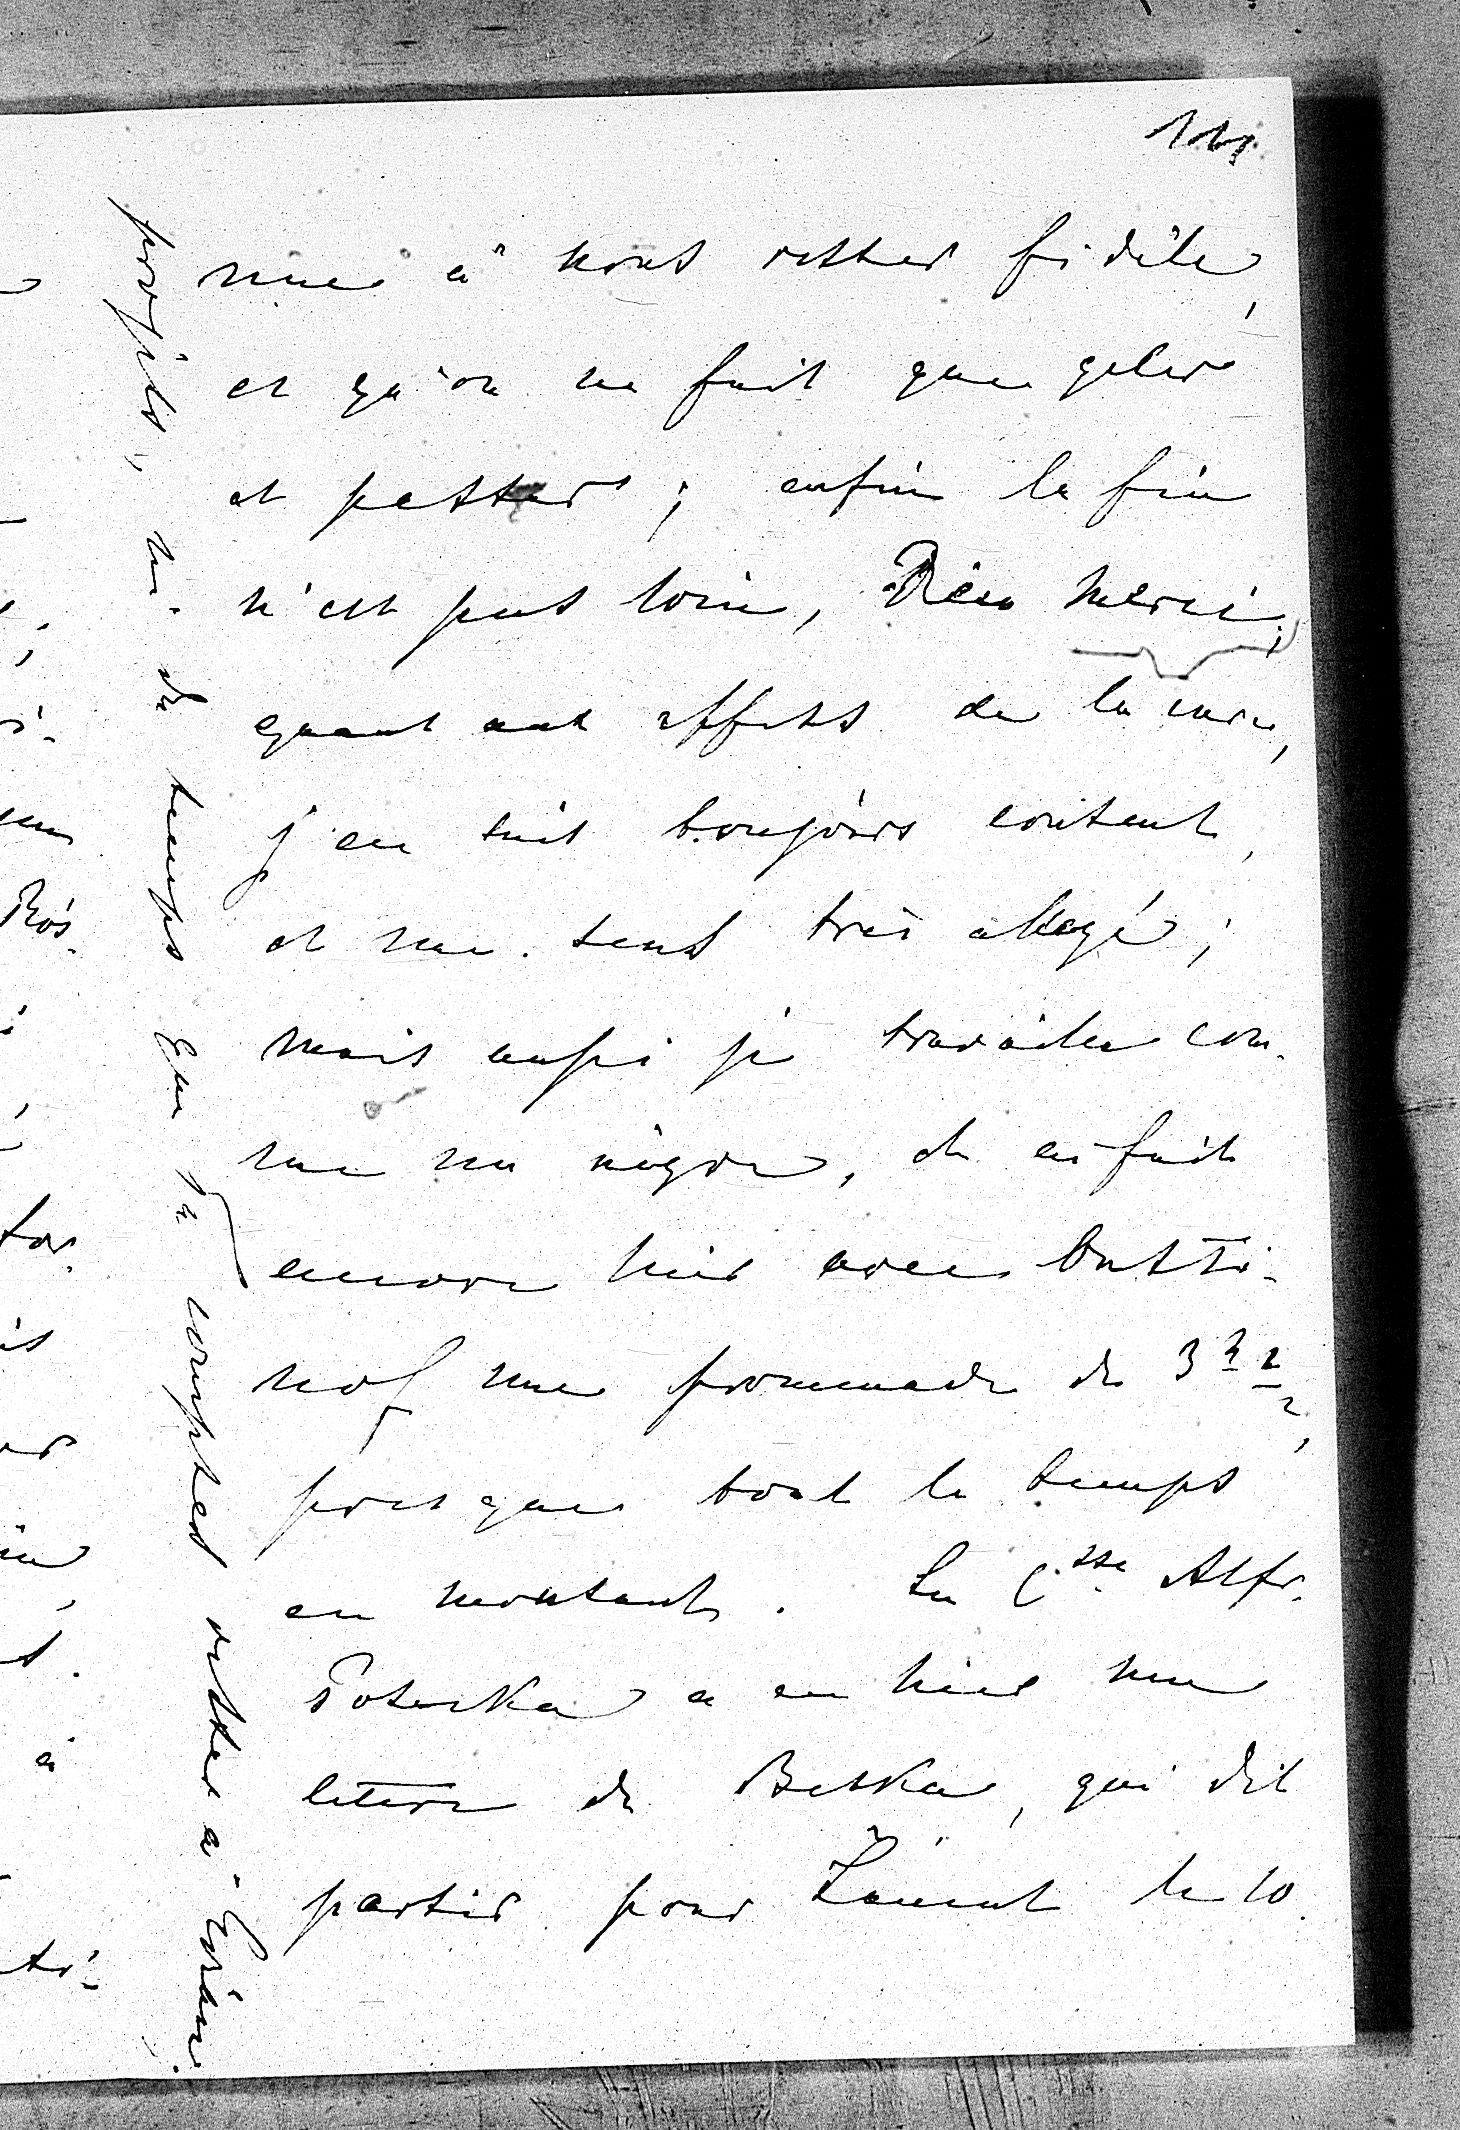 nue à nous rester fidèle,
et qu'on ne fait que geler
et pester ; enfin la fin
n'est pas loin, Dieu merci ;
quant aux effets de la cure,
j'en suis toujours content,
et me sens très allégé ;
mais aussi je travaille com-
me un nègre, et ai fait
encore hier avec Outti-
nof une promenade de 3 h 1/2,
presque tout le temps
en montant. La Csse Alfr.
Potocka a eu hier une
lettre de Betka, qui dit
partir pour Łańcut le 10.
projets, ni du temps que tu comptes rester à